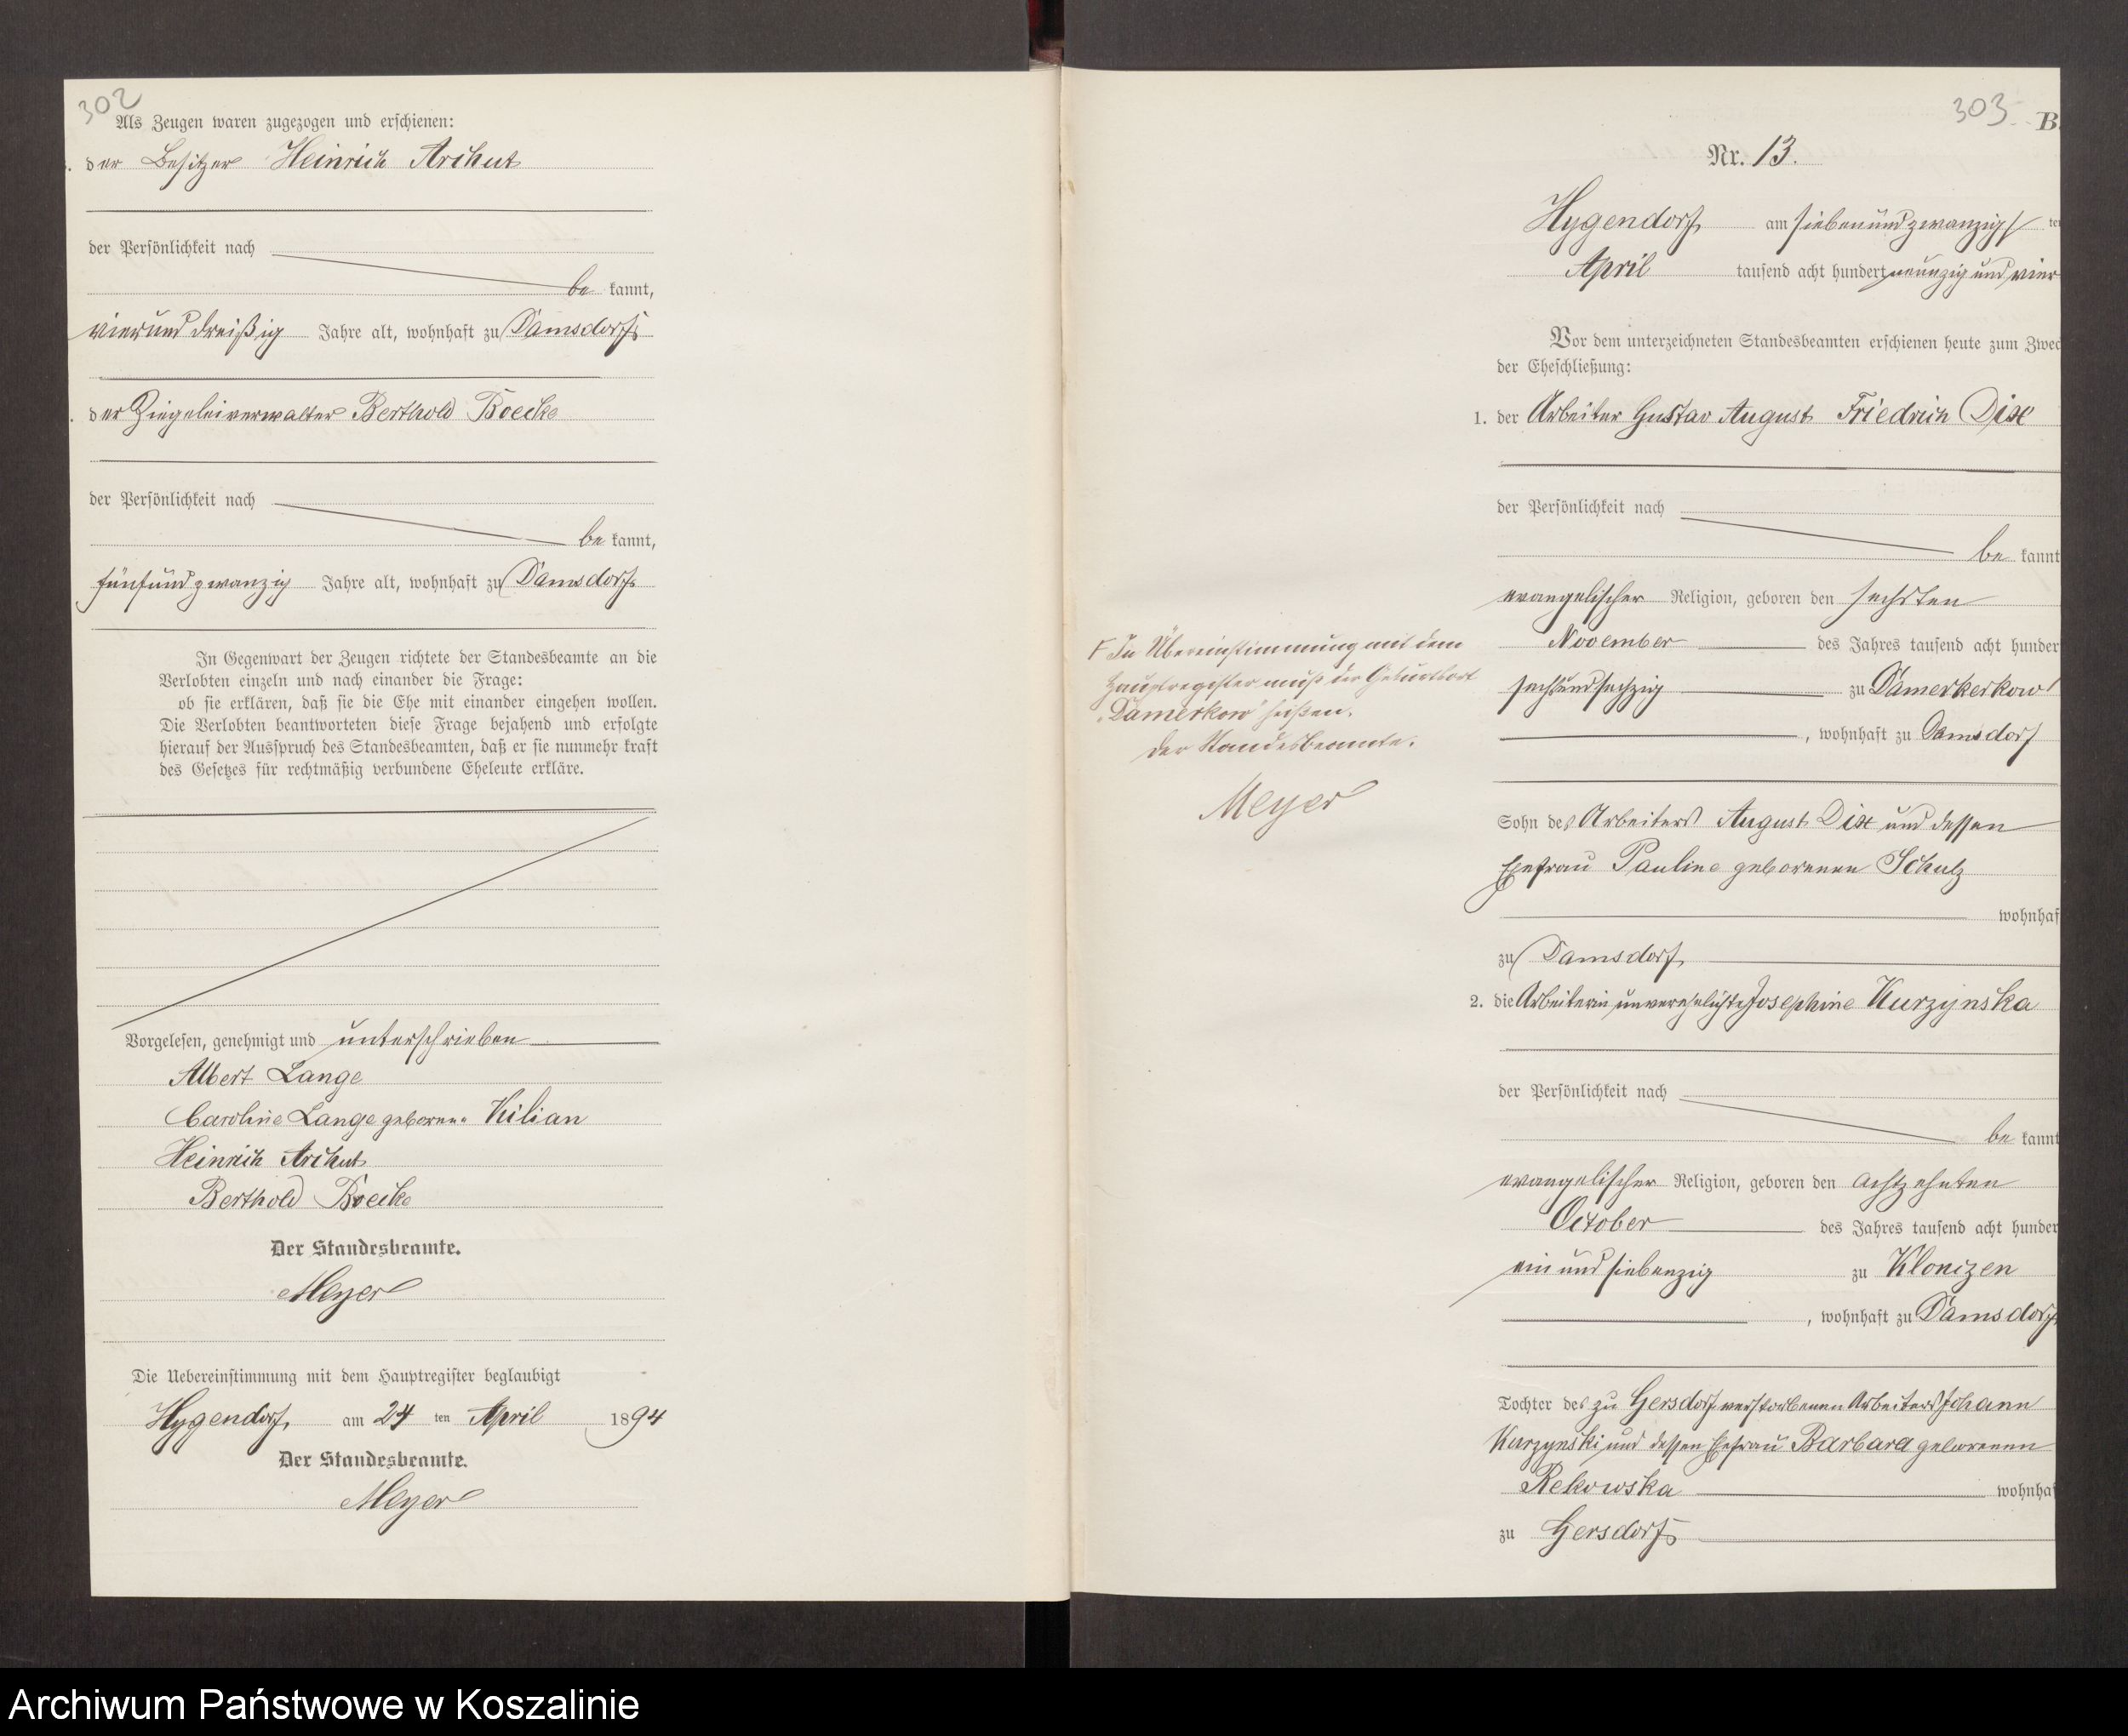 302
Als Zeugen waren zugezogen und erschienen:
der Besitzer Heinrich Archut
der Persönlichkeit nach
be kannt,
vierunddreißig Jahre alt, wohnhaft zu Damsdorf
der Ziegeleiverwalter Berthold Boecke
der Persönlichkeit nach
be kannt,
fünfundzwanzig Jahre alt, wohnhaft zu Damsdorf
In Gegenwart der Zeugen richtete der Standesbeamte an die
Verlobten einzeln und nach einander die Frage:
ob sie erklären, daß sie die Ehe mit einander eingehen wollen.
Die Verlobten beantworteten diese Frage bejahend und erfolgte
hierauf der Ausspruch des Standesbeamten, daß er sie nunmehr kraft
des Gesetzes für rechtmäßig verbundene Eheleute erkläre.
Vorgelesen, genehmigt und unterschrieben
Albert Lange
Caroline Lange geborene Kilian
Heinrich Archut
Berthold Boecke
Der Standesbeamte.
Meyer
Die Uebereinstimmung mit dem Hauptregister beglaubigt
Hygendorf, am 24 ten April 1894
Der Standesbeamte.
Meyer
303
B.
Nr. 13.
Hygendorf, am siebenundzwanzigs ten
April tausend acht hundert neunzig und vier
Vor dem unterzeichneten Standesbeamten erschienen heute zum Zwec
der Eheschließung:
1. der Arbeiter Gustav August Friedrich Dix
der Persönlichkeit nach
be kannt
evangelischer Religion, geboren den sechsten
November des Jahres tausend acht hunder
sechsundsechzig zu Damerkerkow
, wohnhaft zu Damsdorf
Sohn des Arbeiters August Dix und dessen
Ehefrau Pauline geborenen Schulz
wohnhaf
zu Damsdorf,
2. die Arbeiterin unverehelichte Josephine Kurzynska
der Persönlichkeit nach
be kannt
evangelischer Religion, geboren den achtzehnten
October des Jahres tausend acht hunder
ein und siebenzig zu Klonczen
, wohnhaft zu Damsdorf,
Tochter des zu Gersdorf verstorbenen Arbeiters Johann
Kurzynski und dessen Ehefrau Barbara geborenen
Rekowska wohnha
zu Gersdorf
In Übereinstimmung mit dem
Hauptregister muß der Geburtsort
"Damerkow" heißen.
Der Standesbeamte.
Meyer
Archiwum Państwowe w Koszalinie